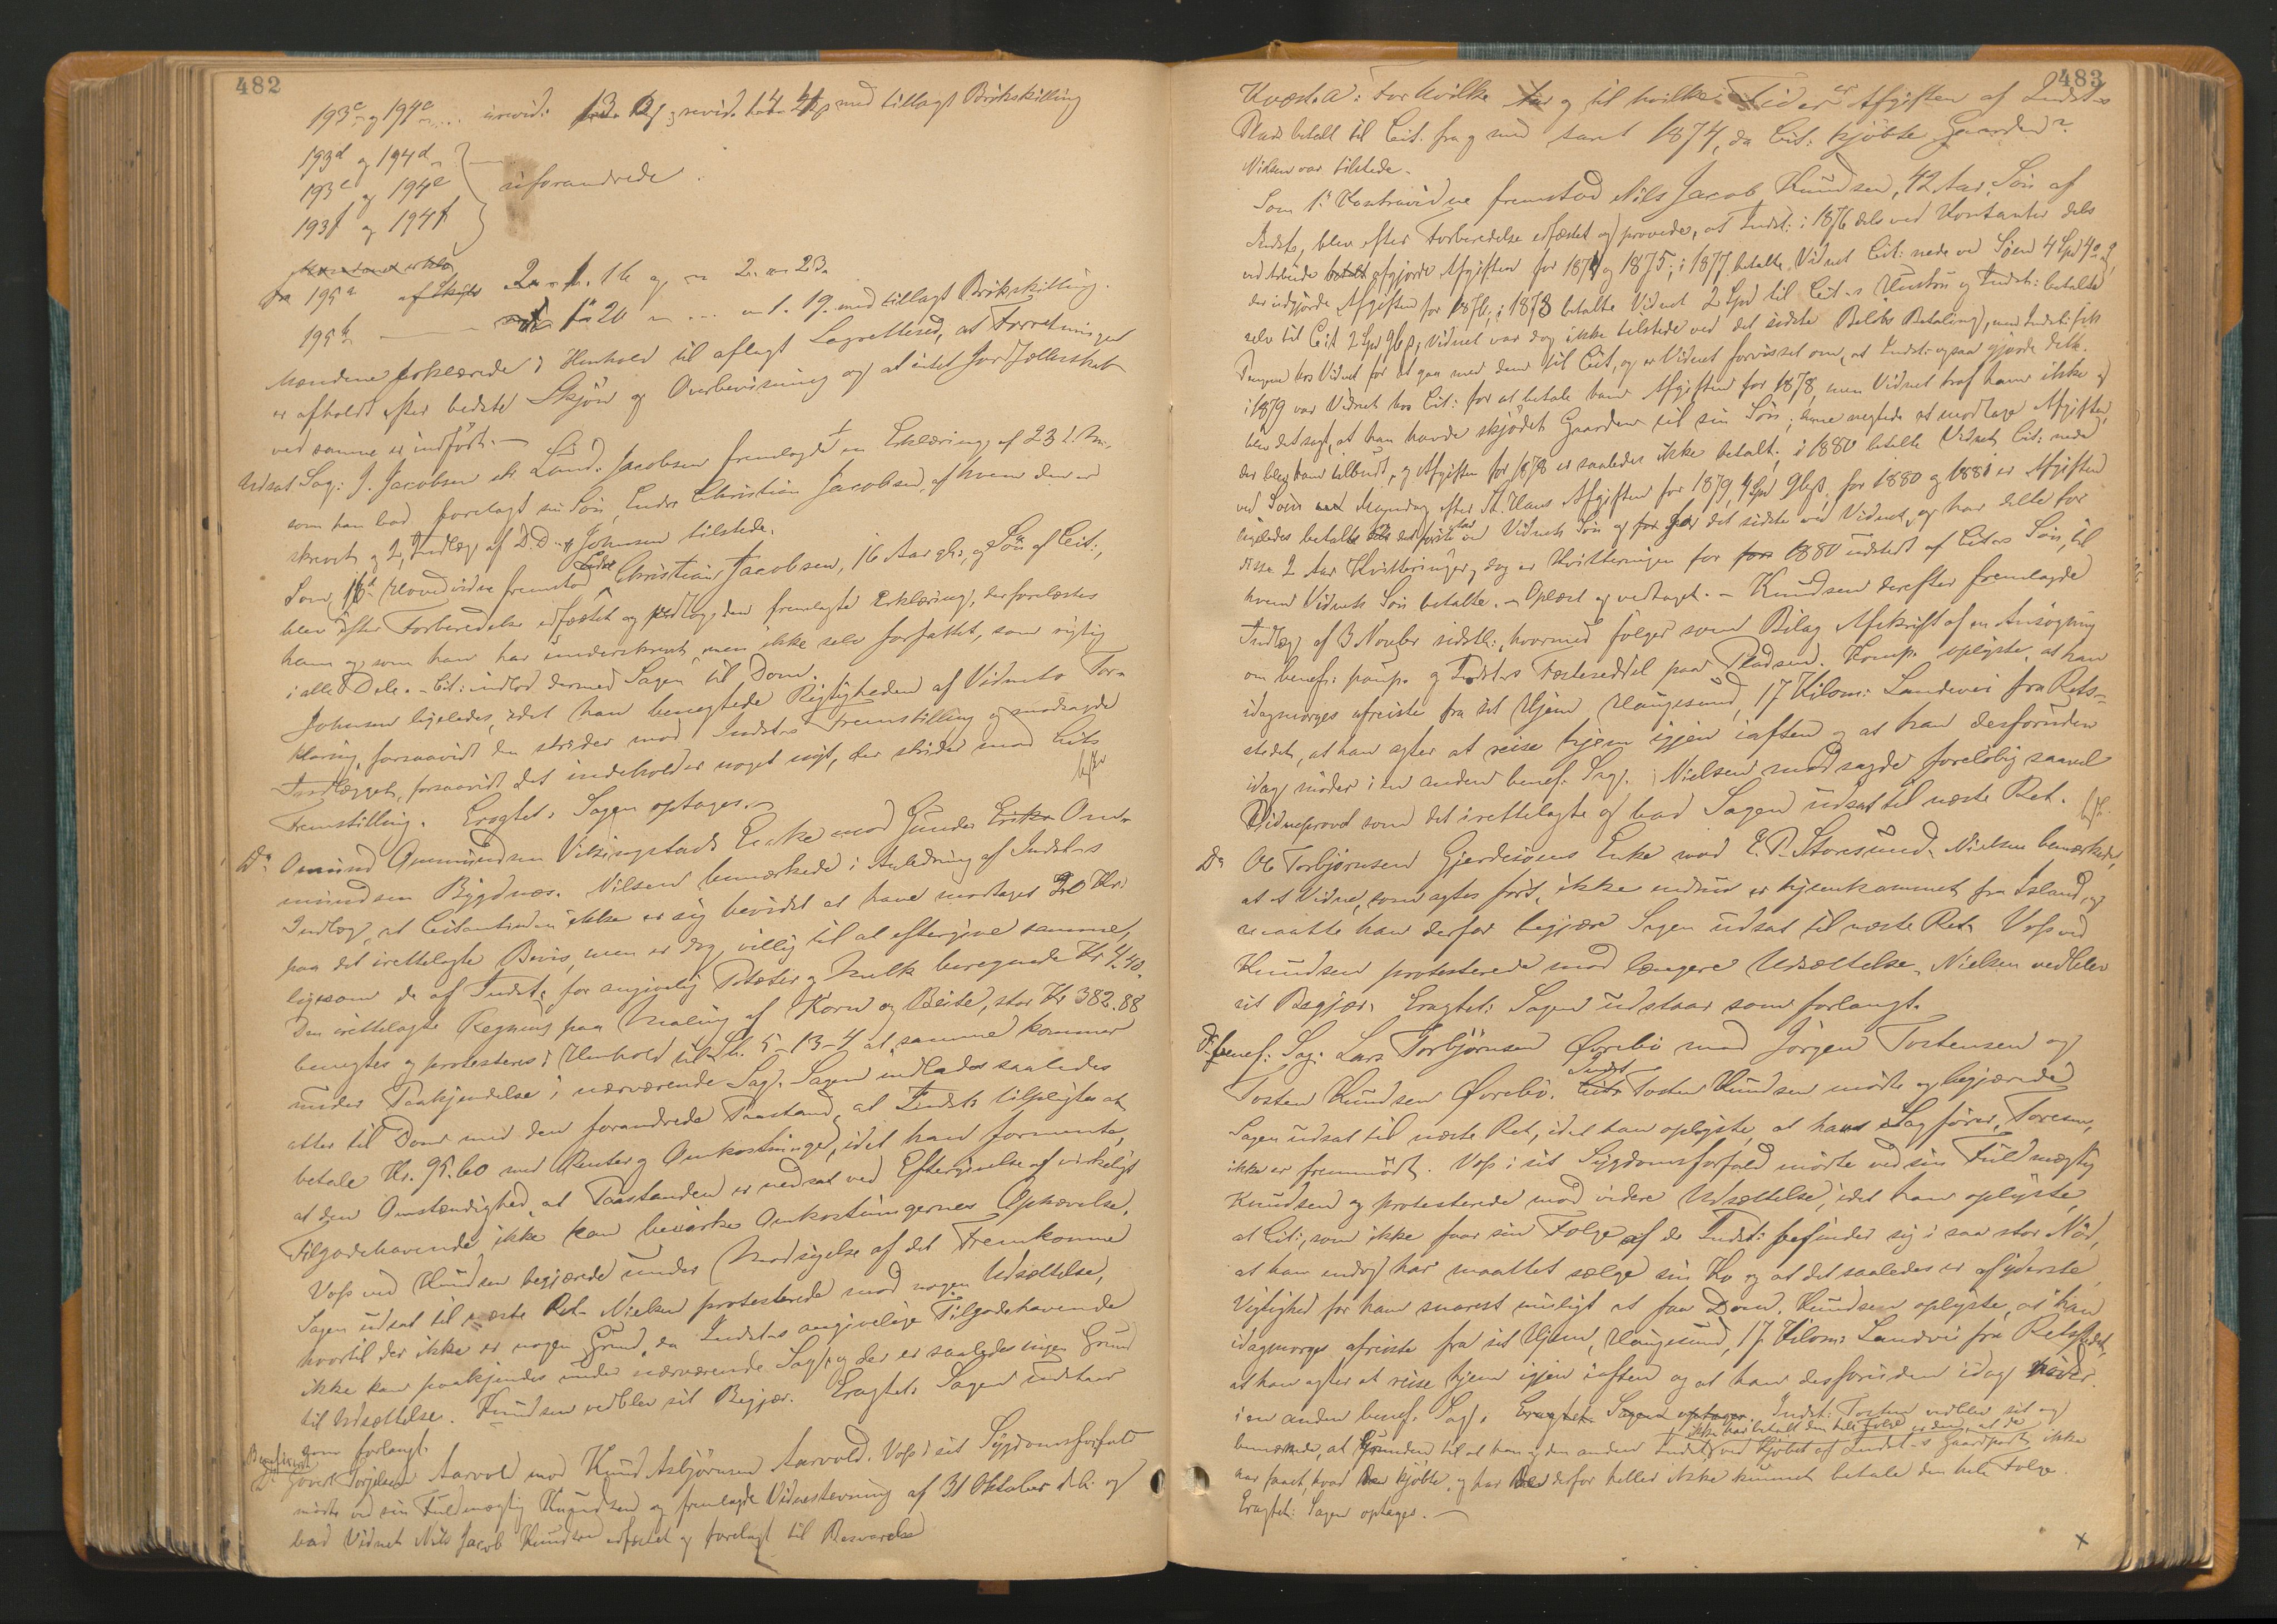 482
193c og 194c .... urevid: 13 og revid. 1 4 med tillagt Brökskilling
193d og 194d
193e og 194e } uforandrede.
193f og 194f
195a af Skyld 2 . 1. 16 og 2. 23.
195b 20 1. 19. med tillagt Brökskilling.
Mændene erklærede i Henhold til aflagt Lagretteed, at Forretningen
er afholdt efter bedste Skjön og Overbevisning og at intet Jordfællesskab
ved samme er indfört.
Udsat Sag: J. Jacobsen Jacobsen fremlagde en Erklæring af 23 d. M.,
som han bad forelagt sin Sön, Endre Christian Jacobsen, af hvem den er
skrevet og 2, Indlæg af D.D. Johnsen tilstede.
Som Hovedvidne fremstod Endre Christian Jacobsen, 16 Aar gl., og Sön af Cit:,
blev efter Forberedelse edfæstet og vedtog den fremlagte Erklæring, der forelæstes
ham og som han har underskrevet men ikke selv forfattet, som rigtig
i alle Dele. - Cit: indlod dermed Sagen til Dom.
Johnsen ligeledes, idet han benegtede Rigtigheden af Vidnets For-
klaring, forsaavidt den strider mod Indst-s Fremstilling og modsagde
Indlægget, forsaavidt det indeholder noget nyt, der strider mod Cits
Fremstilling. Eragtet: Sagen optages.
Do Omund Ommundsen Vikingstads Enke mod Gunder Om-
mundsen Bygdnæs. Nilsen bemærkede i Anledning af Indst-s
Indlæg, at Citantinden ikke er sig bevidst at have modtaget 20 Kr:
paa det irettelagte Bevis, men er dog villig til at eftergive samme,
ligesom de af Indst: for angivelig Poteter og Melk beregnede Kr 4,40.
Den irettelagte Regning paa Maling af Korn og Beite, stor Kr 382.88
benegtes og protesteres i Henhold til L. 5-13-4 at samme kommer
under Paakjendelse i nærværende Sag. Sagen indlades saaledes
atter til Dom med den forandrede Paastand, at Indst: tilpligtes at
betale Kr. 95.60 med Renter og Omkostninger, idet han formente,
at den Omstændighed, at Paastanden er nedsat ved Eftergivelse af virkeligt
Tilgodehavende ikke kan bevirke Omkostningernes Ophævelse.
Voss ved Knudsen begjærede under Modsigelse af det Fremkomne
Sagen udsat til næste Ret. Nielsen protesterede mod nogen Udsættelse,
hvortil der ikke er nogen Grund, da Indst-s angivelige Tilgodehavende
ikke kan paakjendes under nærværende Sag, og der er saaledes ingen Grund
til Udsættelse. Knudsen vedblev sit Begjær. Eragtet: Sagen udstaar
som forlangt.
Beneficeret
Do Govert Torgilsen Aarvold mod Knud Asbjörnsen Aarvold. Voss i sit Sygdomsforfald
mödte ved sin Fuldmægtig Knudsen og fremlagde Vidnestevning af 31 Oktober d.A. og
bad Vidnet Nils Jacob Knudsen edfæstet og forelagt til Besvarelse
483
Kvæst. a: For hvilke Aar og til hvilke Tider er Afgiften af Indst-s
Plads betalt til Cit. fra og med Aaret 1874, da Cit: kjöbte Gaarden?
Nielsen var tilstede.
Som 1ste Kontravidne fremstod Nils Jacob Knudsen, 42 Aar, Sön af
Indst, blev efter Forberedelse edfæstet og provede, at Indst: i 1876 dels ved Kontanter dels
ved Arbeide afgjorde Afgiften for 1874 og 1875; i 1877 betalte Vidnet Cit: nede ved Söen 4 Spd
der udgjorde Afgiften for 1876; i 1878 betalte Vidnet 2 Spd til Cit-s Hustru og Indst: betalte
selv til Cit 2 Spd 96 s; Vidnet var dog ikke tilstede ved det sidste Belöbs Betaling, men Indst: fik
Pengene hos Vidnet for at gaa med dem til Cit, og er Vidnet forvisset om, at Indst: ogsaa gjorde dette.
i 1879 var Vidnet hos Cit: for at betale ham Afgiften for 1878, men Vidnet traf ham ikke og
blev det sagt, at han havde skjödet Gaarden til sin Sön; denne negtede at modtage Afgiften,
der blev ham tilbudt, og Afgiften for 1878 er saaledes ikke betalt; i 1880 betalte Vidnet Cit: nede
ved Söen Mandag efter St. Hans Afgiften for 1879, 4 Spd 96 s, for 1880 og 1881 er Afgiften
ligeledes betalt det förste Aar ved Vidnets Sön og for det sidste ved Vidnet, og har dette for
disse 2 Aar Kvitteringer, dog er Kvitteringen for 1880 udstedt af Cit-s Sön, til
hvem Vidnets Sön betalte. - Oplæst og vedtaget. - Knudsen derefter fremlagde
Indlæg af 3 Novbr sidstl:, hvormed fölger som Bilag Afskrift af en Ansögning
om benef: paup. og Indst-s Fæsteseddel paa Pladsen. Komp. oplyste, at han
idagmorges afreiste fra sit Hjem Haugesund, 17 Kilom: Landevei fra Rets-
stedet, at han agter at reise hjem igjen iaften og at han desforuden
idag möder i en anden benef. Sag. Nielsen modsagde forelöbig saavel
Vidneprovet som det irettelagte og bad Sagen udsat til næste Ret.
Do Ole Torbjörnsen Gjerdesöens Enke mod E. P. Storesund. Nielsen bemærkede,
at et Vidne, som agtes fört, ikke endnu er hjemkommet fra Island, og
maatte han derfor begjære Sagen udsat til næste Ret. Voss ved
Knudsen protesterede mod længere Udsættelse. Nielsen vedblev
sit Begjær. Eragtet: Sagen udstaar som forlangt.
Do benef: Sag: Lars Torbjörnsen Övrebö mod Jörgen Tostensen og
Tosten Knudsen Övrebö. Indst Tosten Knudsen mödte og begjærede
Sagen udsat til næste Ret, idet han oplyste, at hans Sagförer, Foresen,
ikke er fremmödt. Voss i sit Sygdomsforfald mödte ved sin Fuldmægtig
Knudsen og protesterede mod videre Udsættelse, idet han oplyste,
at Cit:, som ikke faar sin Folge af de Indst: befinder sig i saa stor Nöd,
at han endog har maattet sælge sin Ko og at det saaledes er af yderste
Vigtighed for ham snarest muligt at faa Dom. Knudsen oplyste, at han
idagmorges afreiste fra sit Hjem, Haugesund, 17 Kilom: Landevei fra Retsstedet,
at han agter at reise hjem igjen iaften og at han desforuden idag möder
i en anden benef. Sag. Eragtet: Sagen optages. Indst: Tosten vedblev sit og
bemærkede, at Grunden til at han og den anden Indst: ikke har betalt den hele Folge er den, at de ved Kjöbet af Indst-s Gaardpart ikke
har faaet, hvad de kjöbte, og har de derfor heller ikke kunnet betale den hele Folge
Eragtet: Sagen optages. -
x